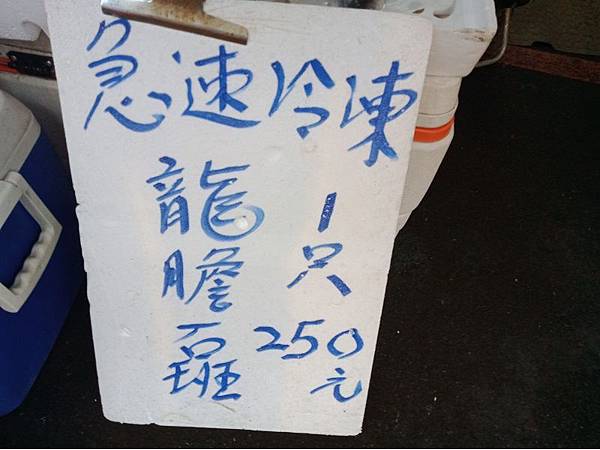 急速冷凍
龍膽石班
1只
250
元